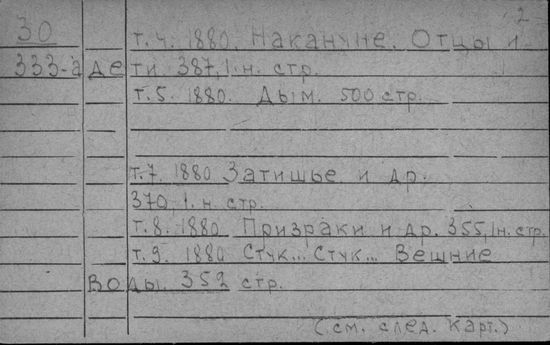 2
30 т.4. 1880. Накануне. Отцы и
333-а дети 387, 1.н. стр.
т.5. 1880. Дым. 500 стр.
т.7. 1880 Затишье и др.
370, 1.н. стр.
т.8. 1880 Призраки и др. 355, 1н. стр.
т.9. 1880 Стук... Стук... Вешние
воды. 352 стр.
(см. след. карт.)